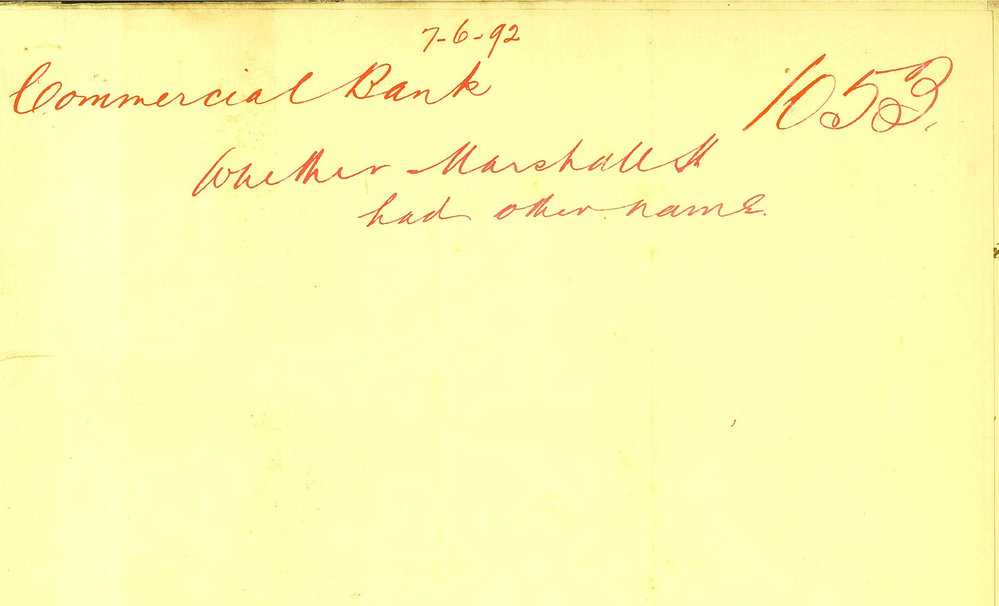 7-6-92
Commercial Bank
1053.
Whether Marshall St
had other name.